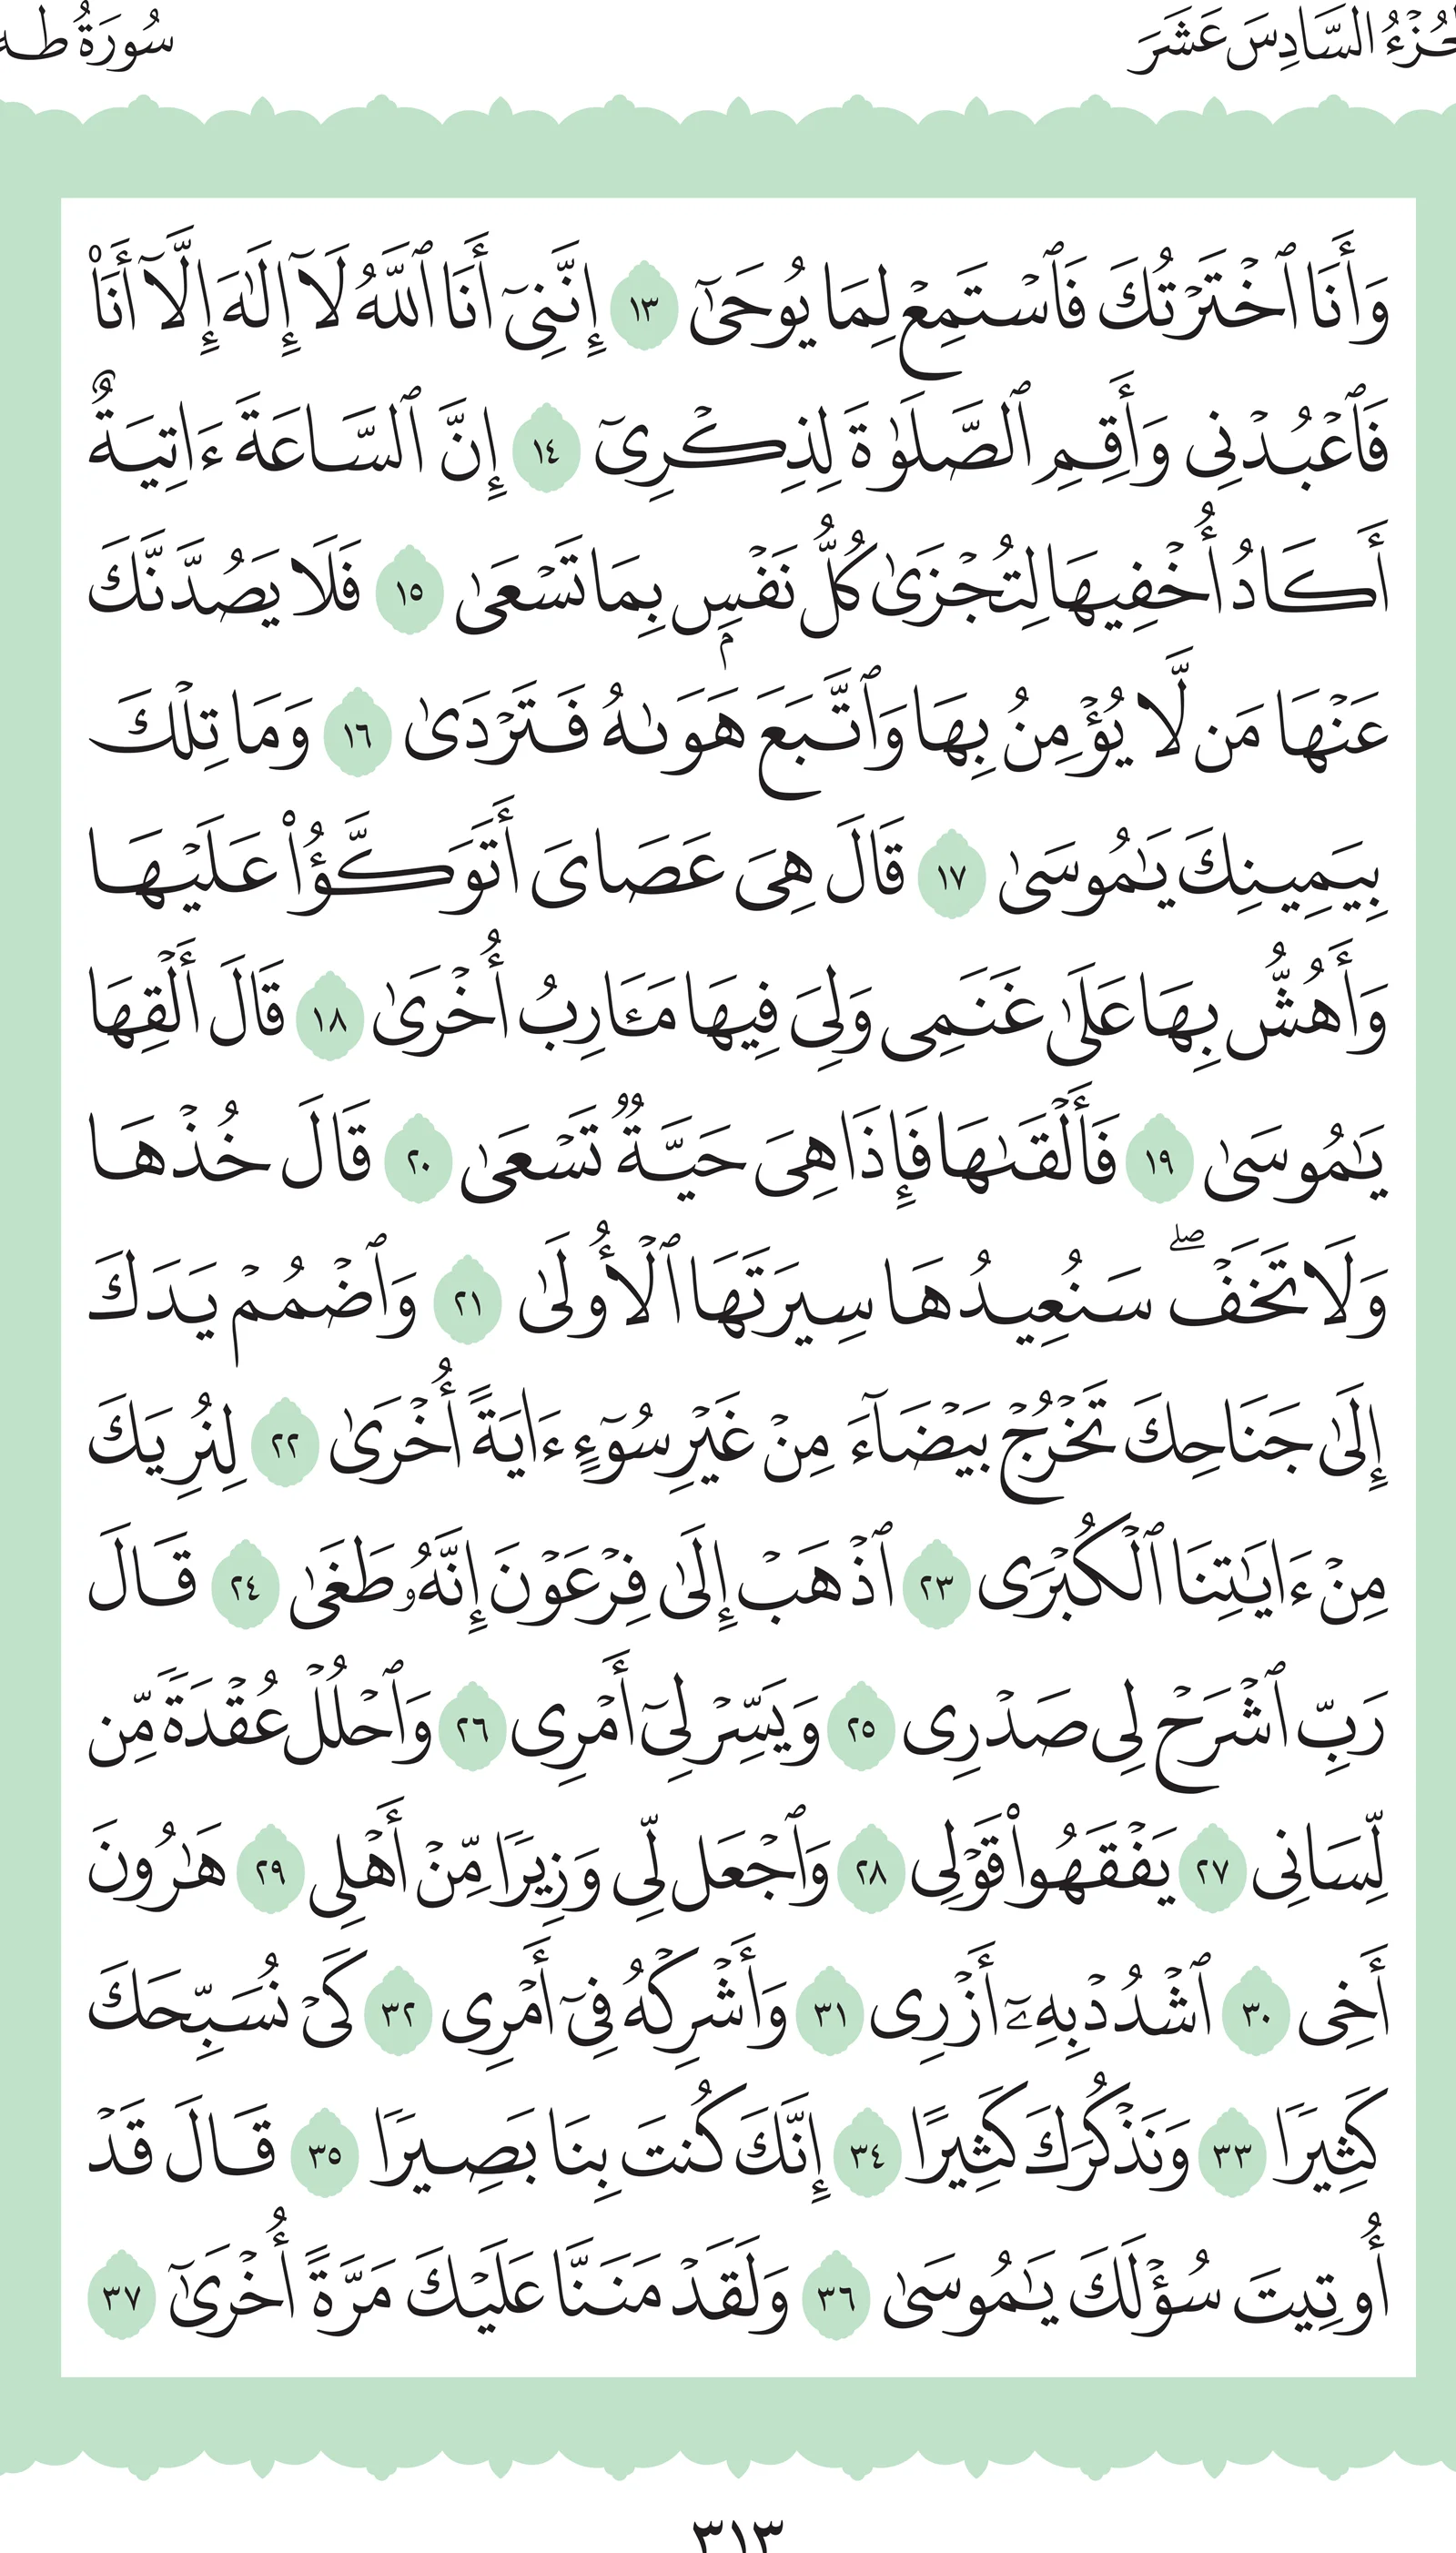 الجُزْءُ السَّادِسَ عَشَرَ سُورَةُ طه
وَأَنَا ٱخْتَرْتُكَ فَٱسْتَمِعْ لِمَا يُوحَىٰٓ ١٣ إِنَّنِىٓ أَنَا ٱللَّهُ لَآ إِلَـٰهَ إِلَّآ أَنَا۠
فَٱعْبُدْنِى وَأَقِمِ ٱلصَّلَوٰةَ لِذِكْرِىٓ ١٤ إِنَّ ٱلسَّاعَةَ ءَاتِيَةٌ
أَكَادُ أُخْفِيهَا لِتُجْزَىٰ كُلُّ نَفْسِۭ بِمَا تَسْعَىٰ ١٥ فَلَا يَصُدَّنَّكَ
عَنْهَا مَن لَّا يُؤْمِنُ بِهَا وَٱتَّبَعَ هَوَىٰهُ فَتَرْدَىٰ ١٦ وَمَا تِلْكَ
بِيَمِينِكَ يَـٰمُوسَىٰ ١٧ قَالَ هِىَ عَصَاىَ أَتَوَكَّؤُا۟ عَلَيْهَا
وَأَهُشُّ بِهَا عَلَىٰ غَنَمِى وَلِىَ فِيهَا مَـَٔارِبُ أُخْرَىٰ ١٨ قَالَ أَلْقِهَا
يَـٰمُوسَىٰ ١٩ فَأَلْقَىٰهَا فَإِذَا هِىَ حَيَّةٌ تَسْعَىٰ ٢٠ قَالَ خُذْهَا
وَلَا تَخَفْ ۖ سَنُعِيدُهَا سِيرَتَهَا ٱلْأُولَىٰ ٢١ وَٱضْمُمْ يَدَكَ
إِلَىٰ جَنَاحِكَ تَخْرُجْ بَيْضَآءَ مِنْ غَيْرِ سُوٓءٍ ءَايَةً أُخْرَىٰ ٢٢ لِنُرِيَكَ
مِنْ ءَايَـٰتِنَا ٱلْكُبْرَى ٢٣ ٱذْهَبْ إِلَىٰ فِرْعَوْنَ إِنَّهُۥ طَغَىٰ ٢٤ قَالَ
رَبِّ ٱشْرَحْ لِى صَدْرِى ٢٥ وَيَسِّرْ لِىٓ أَمْرِى ٢٦ وَٱحْلُلْ عُقْدَةً مِّن
لِّسَانِى ٢٧ يَفْقَهُوا۟ قَوْلِى ٢٨ وَٱجْعَل لِّى وَزِيرًا مِّنْ أَهْلِى ٢٩ هَـٰرُونَ
أَخِى ٣٠ ٱشْدُدْ بِهِۦٓ أَزْرِى ٣١ وَأَشْرِكْهُ فِىٓ أَمْرِى ٣٢ كَىْ نُسَبِّحَكَ
كَثِيرًا ٣٣ وَنَذْكُرَكَ كَثِيرًا ٣٤ إِنَّكَ كُنتَ بِنَا بَصِيرًا ٣٥ قَالَ قَدْ
أُوتِيتَ سُؤْلَكَ يَـٰمُوسَىٰ ٣٦ وَلَقَدْ مَنَنَّا عَلَيْكَ مَرَّةً أُخْرَىٰٓ ٣٧
٣١٣